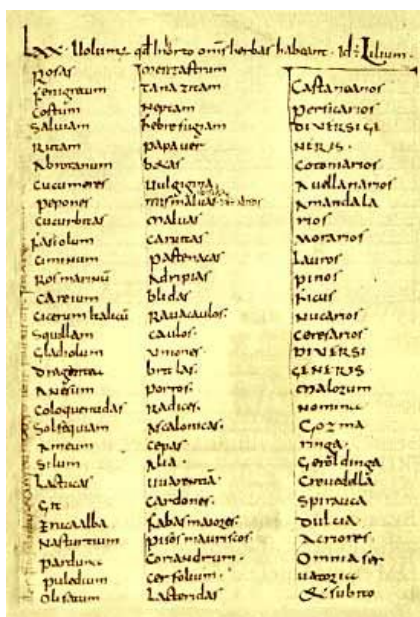 Lxx. Uolum; qđ Inhorto omīs herbas habeant. Id÷ Lilium.
Rosas
fenigrecum
Costum
Saluiam
Rutam
Abrotanum
Cucumeres
pepones
Cucurbitas
Fasiolum
Ciminum
Rosmarinū
Careium
Cicerum Italicū
Squillam
Gladiolum
Dragantea
Anesum
Coloquentidas
Solsequiam
Ameum
Silum
Lactucas
Git
Eruca alba
Nasturtium
Parduna
Puledium
Olisatum
Mentastrum
Tanazitam
Neptam
Febrefugiam
Papauer
betas
Uulgigina
mismaluas
Maluas
Caruitas
Pastenacas
Adripias
blidas
Rauacaulos.
Caulos.
Uniones.
britlas.
Porros.
Radices.
Ascalonicas.
Cepas.
Alia.
Uuarentiā.
Cardones.
Fabas maiores.
Pisos mauriscos.
Coriandrum.
Cerfolium.
Lacteridas
Castanearios
Persicarios
DIVERSI GE
NERIS.
Cotoniarios
Auellanarios
Amandala
rios
Morarios
Lauros
pinos
Ficus
Nucarios
Ceresarios
DIVERSI
GENERIS.
Malorum
Nomina
Gozma
ringa.
Geroldinga
Creuedella
Spirauca
Dulcia.
Acriores
Omnia ser
uatoria
& subito